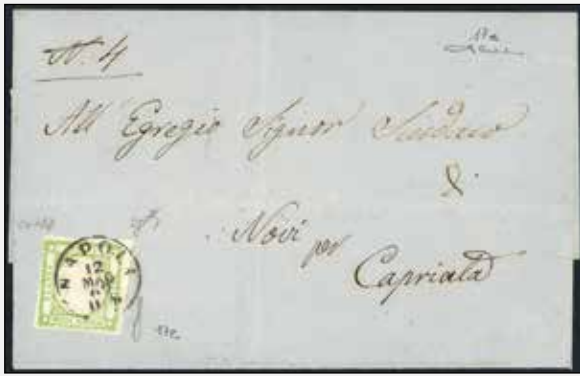 N. 4
17a
All' Egregio Signor Sindaco
di
Novi
per
Capriata
NAPOLI
12
MAR
17a